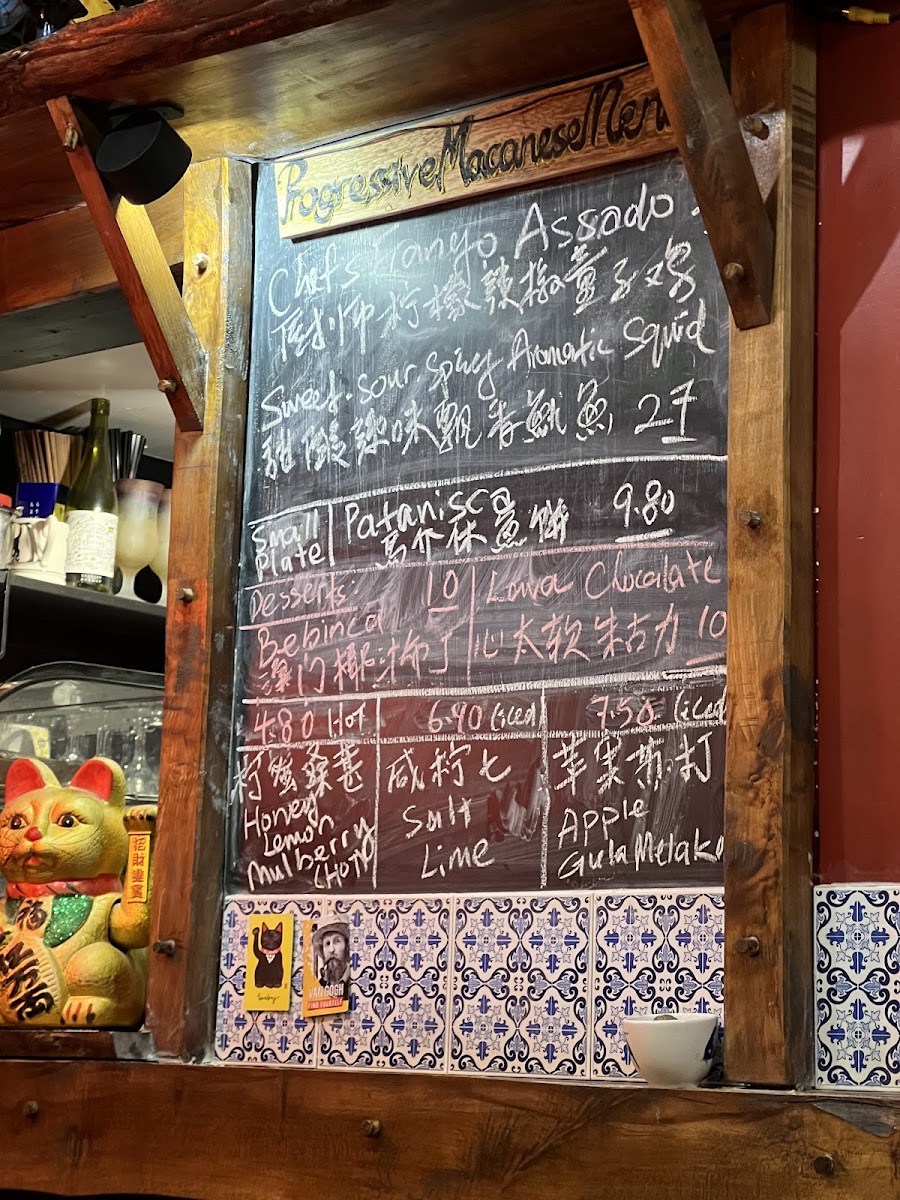 Progressive Macanese Men
Chefs Tango Assado.
厨师柠檬辣椒童子鸡
Sweet. Sour. Spicy Aromatic Squid
甜酸辣味飘香魷魚 27
Small Plate
Patanisca 9.80
馬介休煎餅
Desserts:
Bebinca 10
澳门椰汁布丁
Lava Chocolate
心太软朱古力 10
4.80 Hot
柠蜜桑葚
Honey
Lemon
Mulberry
(HOT)
6.90 (iced)
咸柠七
Salt
Lime
7.50 (iced
苹果斯打
Apple
Gula Melaka
招財進寶
福
VAN GOGH
FIND YOURSELF